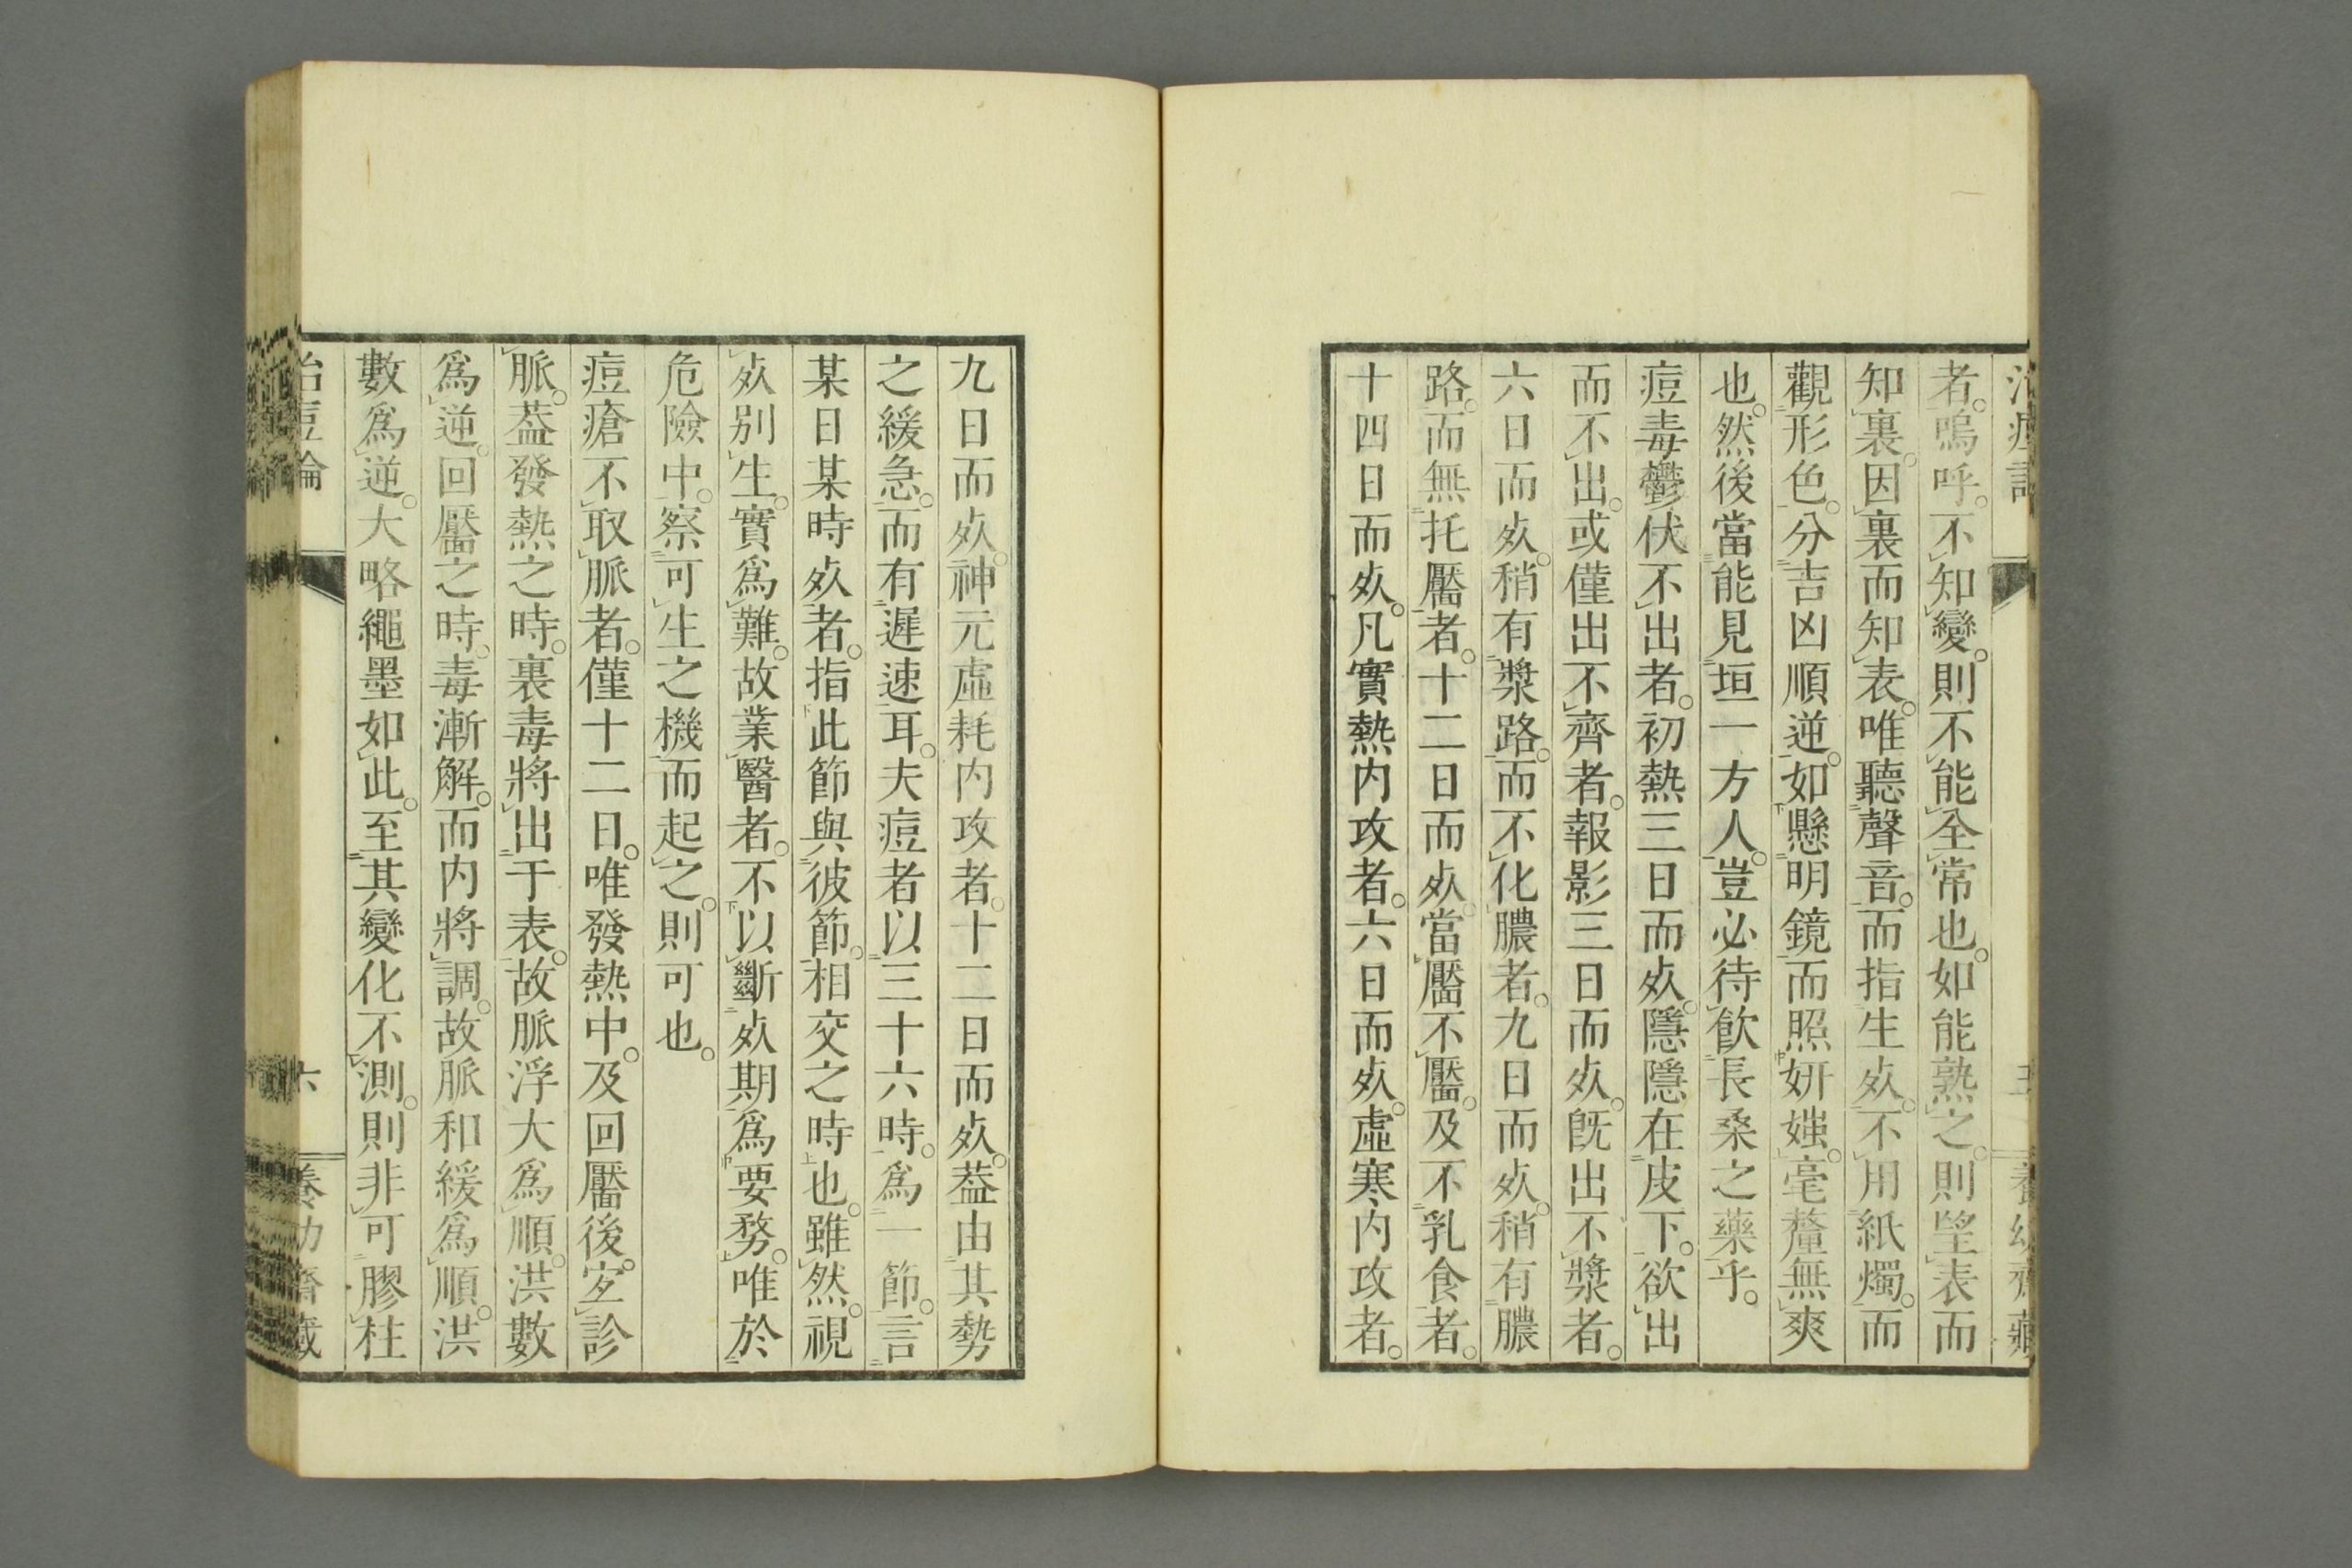 者。嗚呼。不知變。則不能全常也。如能熟之。則望表而
知裏。因裏而知表。唯聽聲音。而指生㱙。不用紙燭。而
觀形色。分吉凶順逆。如懸明鏡而照妍媸。毫釐無爽
也。然後當能見垣一方人。豈必待飮長桑之藥乎。
痘毒鬱伏不出者。初熱三日而㱙。隱隱在皮下。欲出
而不出。或僅出不齊者。報影三日而㱙。旣出不漿者。
六日而㱙。稍有漿路。而不化膿者。九日而㱙。稍有膿
路。而無托靨者。十二日而㱙。當靨不靨。及不乳食者。
十四日而㱙。凡實熱内攻者。六日而㱙。虛寒内攻者。
九日而㱙。神元虛耗内攻者。十二日而㱙。葢由其勢
之緩急。而有遲速耳。夫痘者以三十六時。爲一節。言
某日某時㱙者。指此節與彼節。相交之時也。雖然。視
㱙别生。實爲難。故業醫者。不以斷㱙期爲要務。唯於
危險中。察可生之機而起之。則可也。
痘瘡不取脈者。僅十二日。唯發熱中。及回靨後。宜診
脈。葢發熱之時。裏毒將出于表。故脈浮大爲順。洪數
爲逆。回靨之時。毒漸解。而内將調。故脈和緩爲順。洪
數爲逆。大略繩墨如此。至其變化不測。則非可膠柱
治痘論 六